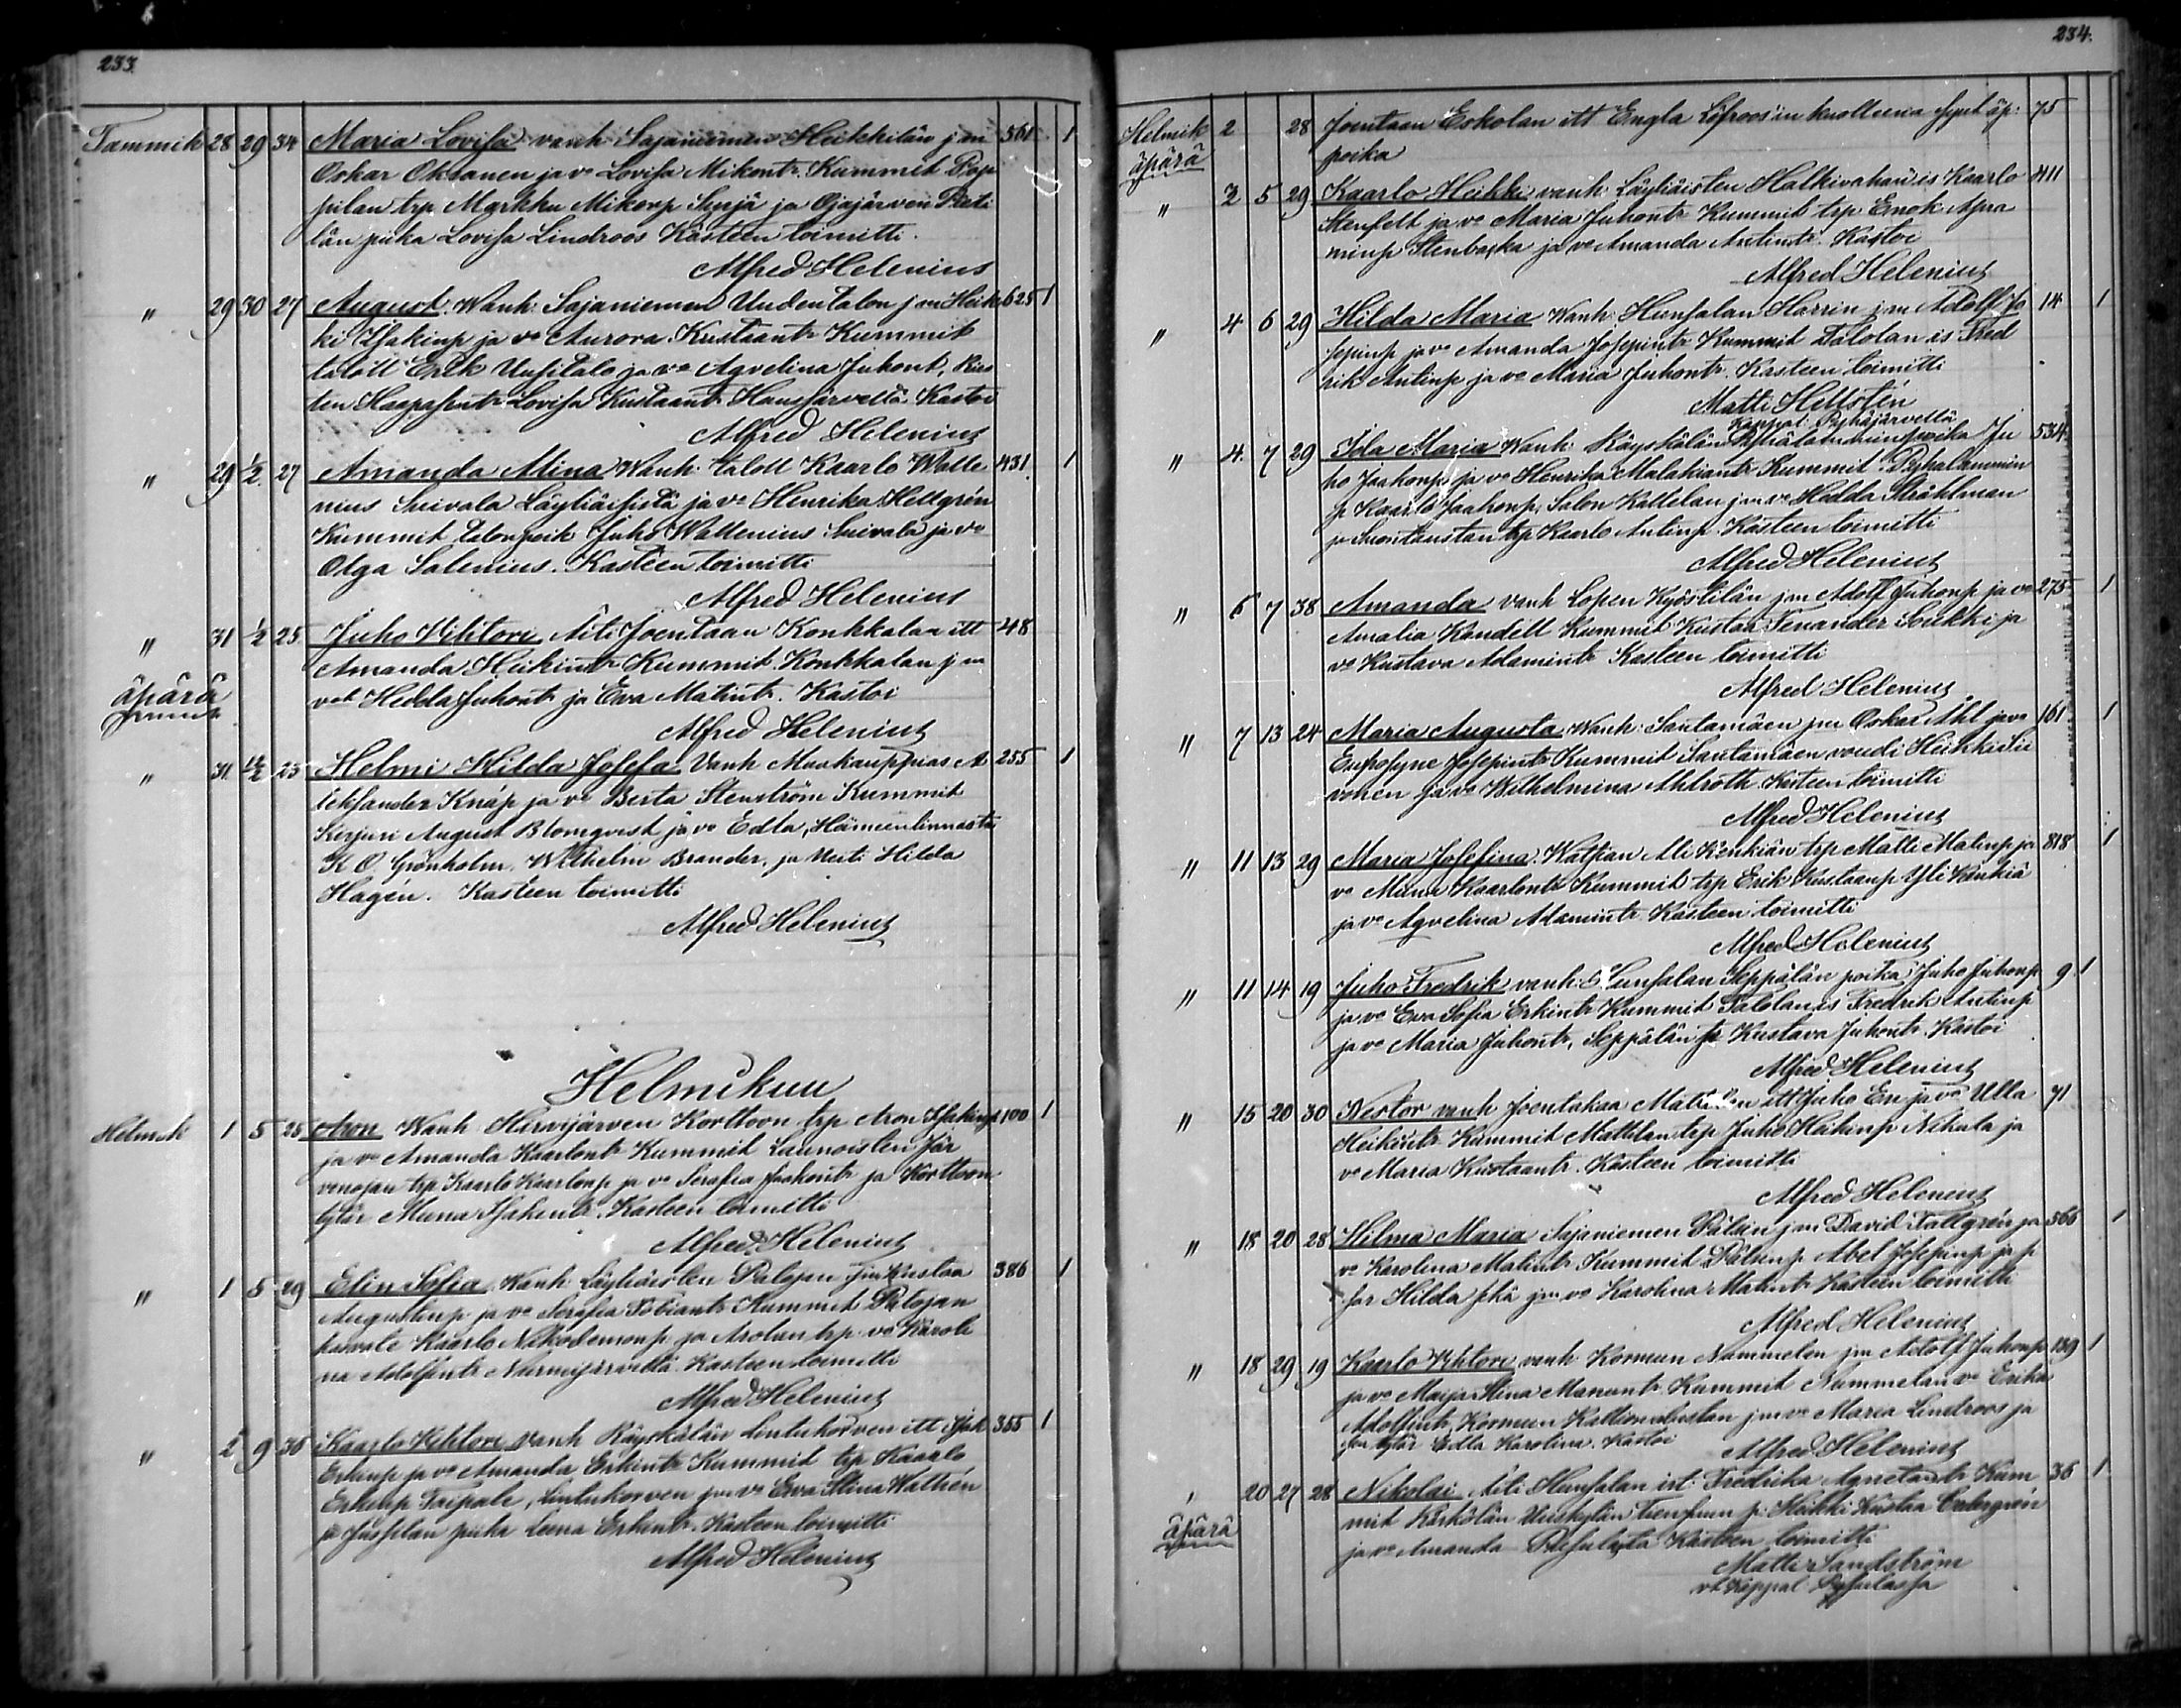 233.
Tammik 28 29 34 Maria Lovisa vanh. Sajaniemen Heikkilän j m 561 1
Oskar Oksanen ja vo Lovisa Mikontr. Kummit Pap
pilan trp Markku Mikonp Syrjä ja Ojajärven
län piika Lovisa Lindroos Kasteen toimitti.
Alfred Helenius
" 29 30 27 August. Wanh. Sajaniemen Uudentalon j m Heik 625 1
ki Isakinp ja vo Aurora Kustaantr Kummit
taloll Erik Uusitalo ja vo Agvelina Juhont,
ten Lovisa Kustaantr Hausjärveltä. Kastoi
Alfred Helenius
" 29 1/2 27 Amanda Miina Wanh. taloll Kaarlo Walle 431 1
nius Suivala Läyliäisistä ja vo Henrika Hellgrén
Kummit talonpoik Juho Wallenius Suivala ja vo
Olga Salenius. Kasteen toimitti
Alfred Helenius
" 31 1/2 25 Juho Vihtori Äiti Joentaan Konkkalan itt 48
äpärä Amanda Heikintr Kummit Konkkalan j m
vo Hedda Juhontr ja Eva Matintr. Kastoi
Alfred Helenius
" 31 23 Helmi Hilda Josefa Vanh Maakauppias A 255 1
leksander Knáp ja vo Berta Stenström Kummit
Kirjuri August Blomqvist ja vo Edla, Hämeenlinnasta
K O Grönholm, Wilhelm Brander, ja Neiti Hilda
Hagen. Kasteen toimitti
Alfred Helenius
Helmikuu
Helmik 1 5 25 Aron Wanh Hirvijärven Korttoon trp Aron Isakinp 100 1
ja vo Amanda Kaarlontr Kummit Launoisten Jär
venojan trp Kaarlo Kaarlonp ja vo Serafia Jaakontr ja Korttoon
tytär Miina Isakintr. Kasteen toimitti
Alfred Helenius
" 1 5 29 Elin Sofia Wanh. Läyliäisten Palojan j m Kustaa 386 1
Augustinp ja vo Serafia Tobiantr Kummit Palojan
Kaarlo Nikodemonp ja Arolan trp vo Karoli
na Adolfintr Nurmijärveltä. Kasteen toimitti
Alfred Helenius
" 2 9 36 Kaarlo Vihtori Vanh Räyskälän Lintukorven itt Isak 355 1
Erkinp ja vo Amanda Erkintr Kummit trp Kaarlo
Erkinp Taipale, Lintukorven j m vo Eva Stina Wathén
ja Jussilan piika Leena Erkintr. Kasteen toimitti
Alfred Helenius
234.
Helmik 2 28 Joentaan Eskolan itt Engla Löfroos'in kuolleena synt äp. 75
äpärä poika
" 2 5 29 Kaarlo Heikki vanh: Läyliäisten Halkivahan is Kaarlo 411
Stenfelt ja vo Maria Juhontr Kummit trp Enok Apra
minp Stenbacka ja vo Amanda Antintr. Kastoi
Alfred Helenius
" 4 6 29 Hilda Maria Wanh. Hunsalan Harrin j m Adolf Jo 14 1
sepinp ja vo Amanda Josepintr Kummit Talolan is Fred
rik Antinp ja vo Maria Juhontr. Kasteen toimitti
Matti Hellstén
Kappal. Pyhäjärvellä
" 4. 7 29 Ida Maria Wanh. Räyskälän Pyhälamminp poika Ju 534
ho Jaakonp ja vo Henrika Malakiantr Kummit Pyhälammin
p Kaarlo Jaakonp, Salon Kattelan j m vo Hedda Stråhlman
ja Suontaustan trp Kaarlo Antinp Kasteen toimitti
Alfred Helenius
" 5 7 38 Amanda vanh Lopen Kyöstilän j m Adolf Juhonp ja vo 275 1
Amalia Randell Kummit Kustaa Tenander Soukki ja
vo Kustava Adamintr Kasteen toimitti
Alfred Helenius
" 7 13 24 Maria Augusta Wanh. Santamäen j m Oskar Ahl ja vo 161 1
Eufrosyne Josepintr Kummit Santamäen voudi Heikki Sii
vonen ja vo Wilhelmina Ahlroth Kasteen toimitti
Alfred Helenius
" 11 13 29 Maria Josefina. Watsian Ali Känkiän trp Matti Matinp ja 818 1
vo Miina Kaarlontr Kummit trp Erik Kustaanp Yli Känkiä
ja vo Agvelina Adamintr Kasteen toimitti
Alfred Helenius
" 11 14 19 Juho Fredrik vanh: Hunsalan Seppälän poika Juho Juhonp 9 1
ja vo Eva Sofia Erkintr Kummit Talolan is Fredrik Antinp
ja vo Maria Juhontr, Seppälän Kustava Juhontr Kastoi
Alfred Helenius
" 15 20 30 Nestor vanh Joentakaa itt Juho En ja vo Ulla 71
Heikintr Kummit Mattilan trp Juho Heikinp Nikula ja
vo Maria Kustaantr. Kasteen toimitti
Alfred Helenius
" 18 20 28 Hilma Maria Sajaniemen Pälsin j m David Tallgrén ja 566 1
vo Karolina Matintr Kummit Abel Josepinp ja p
sar Hilda sekä j m vo Karolina Matintr Kasteen toimitti
Alfred Helenius
" 18 29 19 Kaarlo Vihtori vanh Kormun Nummelan j m Adolf Juhonp 139 1
ja vo Maija Stina Manuntr. Kummit Nummelan vo Erika
Adolfintr, Kormun j m vo Maria Lindroos ja
tytär Edla Karolina. Kastoi Alfred Helenius
20 27 28 Nikolai Äiti Hunsalan ist. Fredrika Agnetantr Kum 36 1
äpärä mit Kärkölän Uuskylän p. Heikki Kustaa Cedergrén
ja vo Amanda Kasteen toimitti
Matti Sandström
vt Kappal